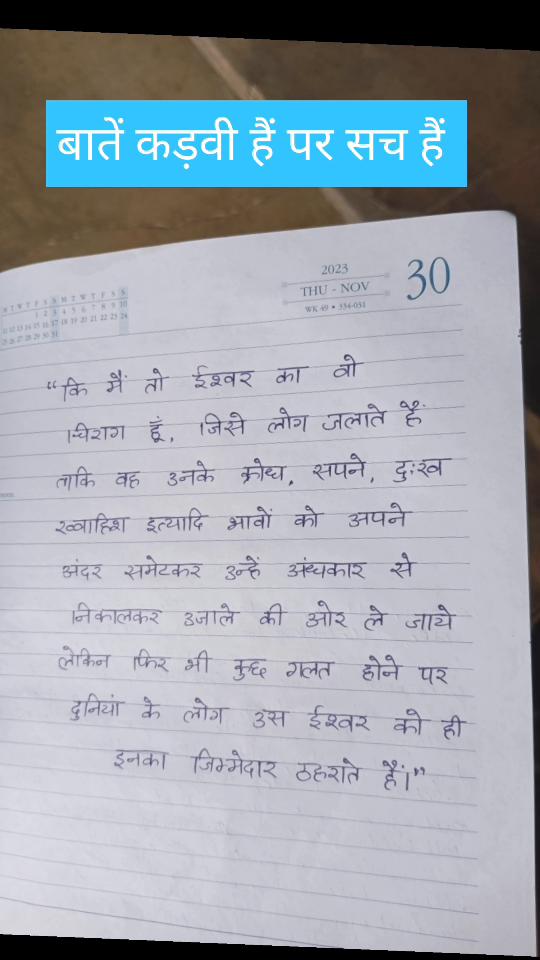 बातें कड़वी हैं पर सच हैं
2023
THU - NOV
30
WK 49 • 334-031
M T W T F S S M T W T F S S
1 2 3 4 5 6 7 8 9 10
11 12 13 14 15 16 17 18 19 20 21 22 23 24
25 26 27 28 29 30 31
“कि मैं तो ईश्वर का वो
चिराग हूं, जिसे लोग जलाते हैं
ताकि वह उनके क्रोध, सपने, दुःख
ख्वाहिश इत्यादि भावों को अपने
अंदर समेटकर उन्हें अंधकार से
निकालकर उजाले की ओर ले जाये
लेकिन फिर भी कुछ गलत होने पर
दुनियां के लोग उस ईश्वर को ही
इनका जिम्मेदार ठहराते हैं।”